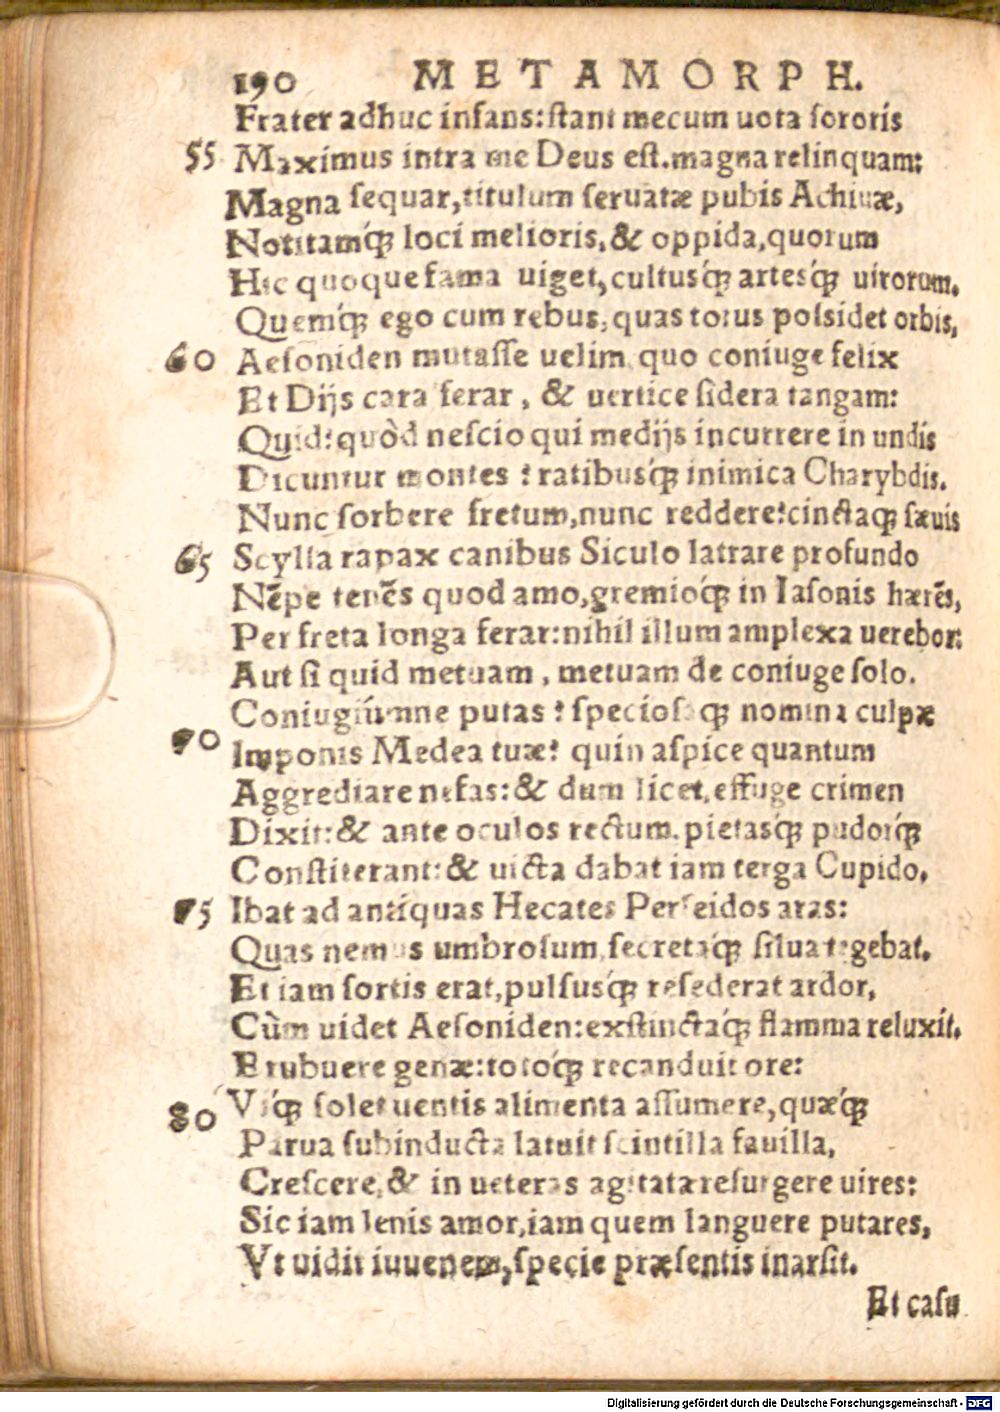 190 METAMORPH.
Frater adhuc infans: ſtant mecum uota ſororis
55 Maximus intra me Deus eſt. magna relinquam:
Magna ſequar, titulum ſeruatæ pubis Achiuæ,
Notitamq́ꝫ loci melioris, & oppida, quorum
Hic quoque fama uiget, cultusq́ꝫ artesq́ꝫ uirorum.
Quemq́ꝫ ego cum rebus, quas totus poſsidet orbis,
60 Aeſoniden mutaſſe uelim, quo coniuge felix
Et Dijs cara ferar, & uertice ſidera tangam:
Quid? quòd neſcio qui medijs incurrere in undis
Dicuntur montes? ratibusq́ꝫ inimica Charybdis.
Nunc ſorbere fretum, nunc reddere? cinctaqꝫ ſæuis
65 Scylla rapax canibus Siculo latrare profundo
Nēpe tenēs quod amo, gremioq́ꝫ in Iaſonis hærēs,
Per freta longa ferar: nihil illum amplexa uerebor:
Aut ſi quid metuam, metuam de coniuge ſolo.
Coniugiúmne putas? ſpecioſaqꝫ nomina culpæ
70 Imponis Medea tuæ? quin aſpice quantum
Aggrediare nefas: & dum licet, effuge crimen
Dixit: & ante oculos rectum, pietasq́ꝫ pudorq́ꝫ
Conſtiterant: & uicta dabat iam terga Cupido,
75 Ibat ad antiquas Hecates Perſeidos aras:
Quas nemus umbroſum, ſecretaq́ꝫ ſilua tegebat.
Et iam fortis erat, pulſusq́ꝫ reſederat ardor,
Cùm uidet Aeſoniden: exſtinctaq́ꝫ flamma reluxit.
Erubuere genæ: totoq́ꝫ recanduit ore:
80 Vtq́ꝫ ſolet uentis alimenta aſſumere, quæq́ꝫ
Parua ſubinducta latuit ſcintilla fauilla,
Creſcere, & in ueteras agitata reſurgere uires:
Sic iam lenis amor, iam quem languere putares,
Vt uidit iuuenem, ſpecie præſentis inarſit.
Et caſu
Digitalisierung gefördert durch die Deutsche Forschungsgemeinschaft - DFG